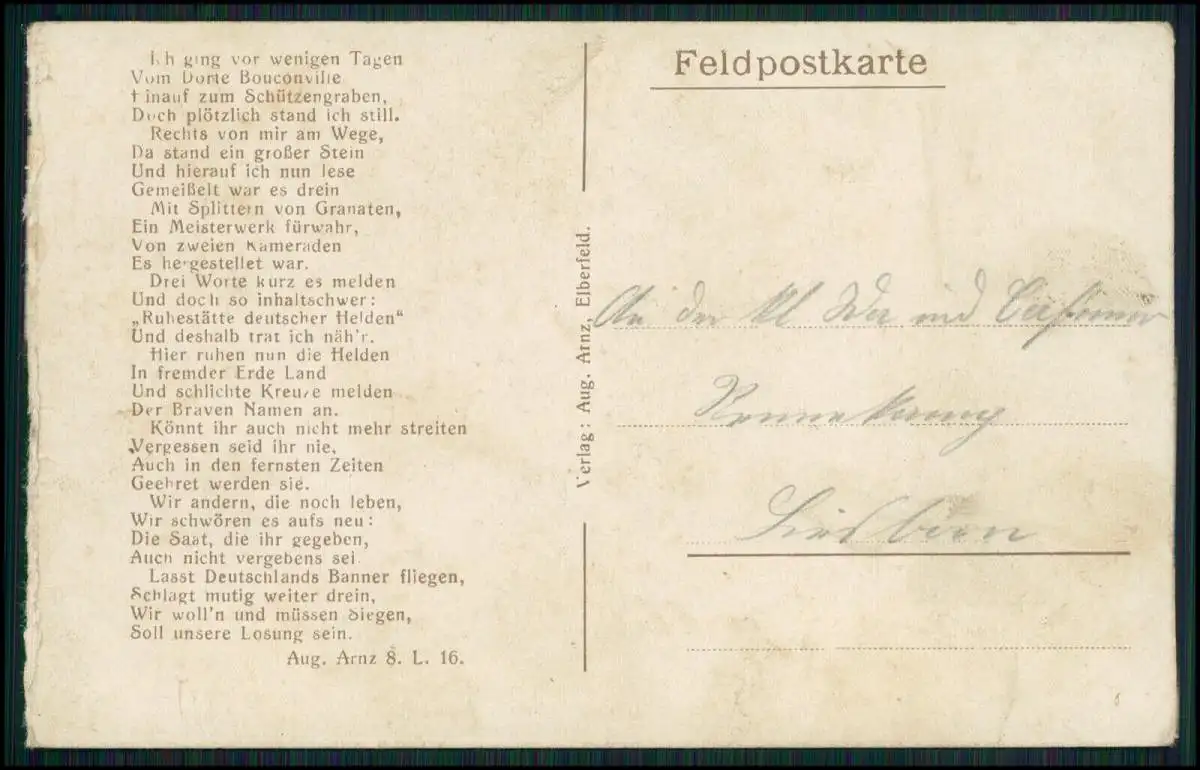 Ich ging vor wenigen Tagen
Vom Dorfe Bouconville
Hinauf zum Schützengraben,
Doch plötzlich stand ich still.
Rechts von mir am Wege,
Da stand ein großer Stein
Und hierauf ich nun lese
Gemeißelt war es drein
Mit Splittern von Granaten,
Ein Meisterwerk fürwahr,
Von zweien Kameraden
Es hergestellet war.
Drei Worte kurz es melden
Und doch so inhaltschwer:
„Ruhestätte deutscher Helden“
Und deshalb trat ich näh'r.
Hier ruhen nun die Helden
In fremder Erde Land
Und schlichte Kreuze melden
Der Braven Namen an.
Könnt ihr auch nicht mehr streiten
Vergessen seid ihr nie,
Auch in den fernsten Zeiten
Geehret werden sie.
Wir andern, die noch leben,
Wir schwören es aufs neu:
Die Saat, die ihr gegeben,
Auch nicht vergebens sei
Lasst Deutschlands Banner fliegen,
Schlagt mutig weiter drein,
Wir woll'n und müssen Siegen,
Soll unsere Losung sein.
Aug. Arnz 8. L. 16.
Verlag: Aug. Arnz, Elberfeld.
Feldpostkarte
An der kl und